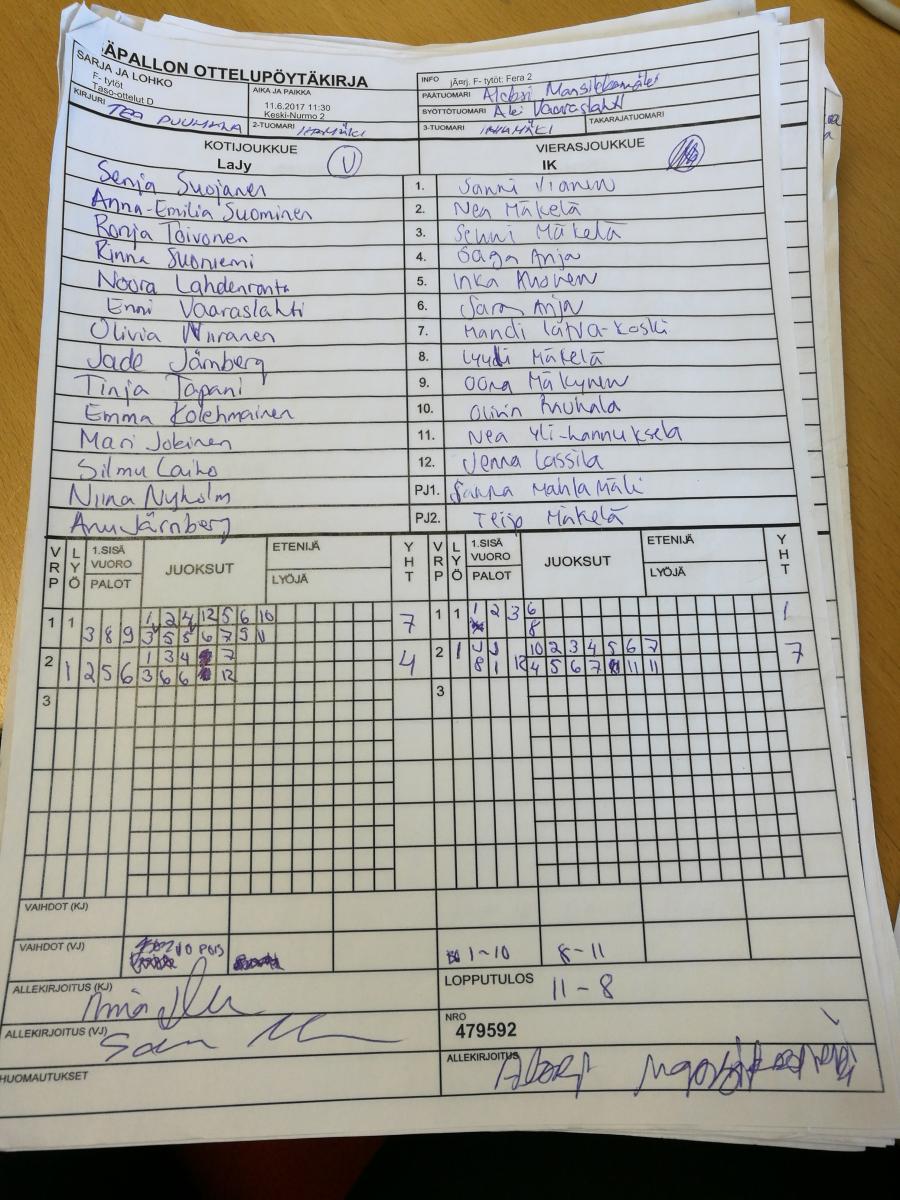 ÄPALLON OTTELUPÖYTÄKIRJA
SARJA JA LOHKO
F- tytöt
Taso-ottelut D
AIKA JA PAIKKA
11.6.2017 11:30
Keski-Nurmo 2
INFO jÃ¤rj. F- tytöt: Fera 2
PÄÄTUOMARI Aleksi
SYÖTTÖTUOMARI Aki Vaaraslahti
KIRJURI TEA
2-TUOMARI
3-TUOMARI
TAKARAJATUOMARI
KOTIJOUKKUE
LaJy V
VIERASJOUKKUE
IK
Senja Suojanen 1. Sanni
Anna-Emilia Suominen 2. Nea Mäkelä
Ronja Toivonen 3. Senni Mäkelä
Rinna Suoniemi 4. Saga Anja
Noora Lahdenranta 5. Inka
Enni Vaaraslahti 6. Sara Anja
Olivia Wiiranen 7. Mandi Latva-Koski
Jade Järnberg 8. Lyydi Mäkelä
Tinja Tapani 9. Oona Mäkynen
Emma Kolehmainen 10. Olivia Rauhala
Mari Jokinen 11. Nea Yli-Hannuksela
Silmu Laiho 12. Jenna Lassila
Niina Nyholm PJ1. Sanna Mahlamäki
Anu Järnberg PJ2. Teijo Mäkelä
VRP LYÖ 1.SISÄ VUORO PALOT JUOKSUT ETENIJÄ LYÖJÄ YHT
VRP LYÖ 1.SISÄ VUORO PALOT JUOKSUT ETENIJÄ LYÖJÄ YHT
1 1 3 8 9 1 2 4 12 5 6 10 7
3 5 5 6 7 5 11
1 1 1 2 3 6 1
8
2 1 2 5 6 1 3 4 7 4
3 6 6 12
2 1 10 2 3 4 5 6 7 7
8 1 12 4 5 6 7 11 11
3 3
VAIHDOT (KJ)
VAIHDOT (VJ) 10 POIS 1-10 8-11
ALLEKIRJOITUS (KJ)
LOPPUTULOS 11-8
ALLEKIRJOITUS (VJ)
NRO
479592
HUOMAUTUKSET
ALLEKIRJOITUS